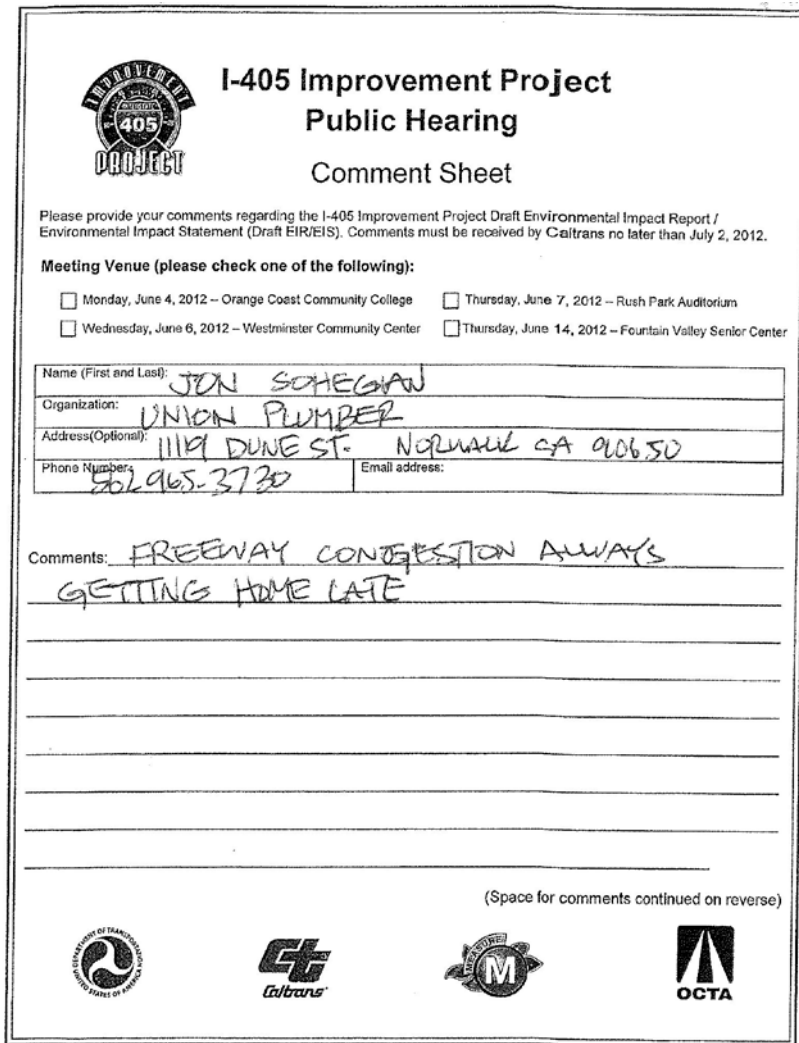 IMPROVEMENT
405
PROJECT
I-405 Improvement Project
Public Hearing
Comment Sheet
Please provide your comments regarding the I-405 Improvement Project Draft Environmental Impact Report /
Environmental Impact Statement (Draft EIR/EIS). Comments must be received by Caltrans no later than July 2, 2012.
Meeting Venue (please check one of the following):
Monday, June 4, 2012 – Orange Coast Community College Thursday, June 7, 2012 – Rush Park Auditorium
Wednesday, June 6, 2012 – Westminster Community Center Thursday, June 14, 2012 – Fountain Valley Senior Center
Name (First and Last): JON SOHEGIAN
Organization: UNION PLUMBER
Address(Optional): 11119 DUNE ST. NORWALK CA 90650
Phone Number: 562 965-3730 Email address:
Comments: FREEWAY CONGESTION ALWAYS
GETTING HOME LATE
(Space for comments continued on reverse)
DEPARTMENT OF TRANSPORTATION
UNITED STATES OF AMERICA
Caltrans
MEASURE
M
OCTA